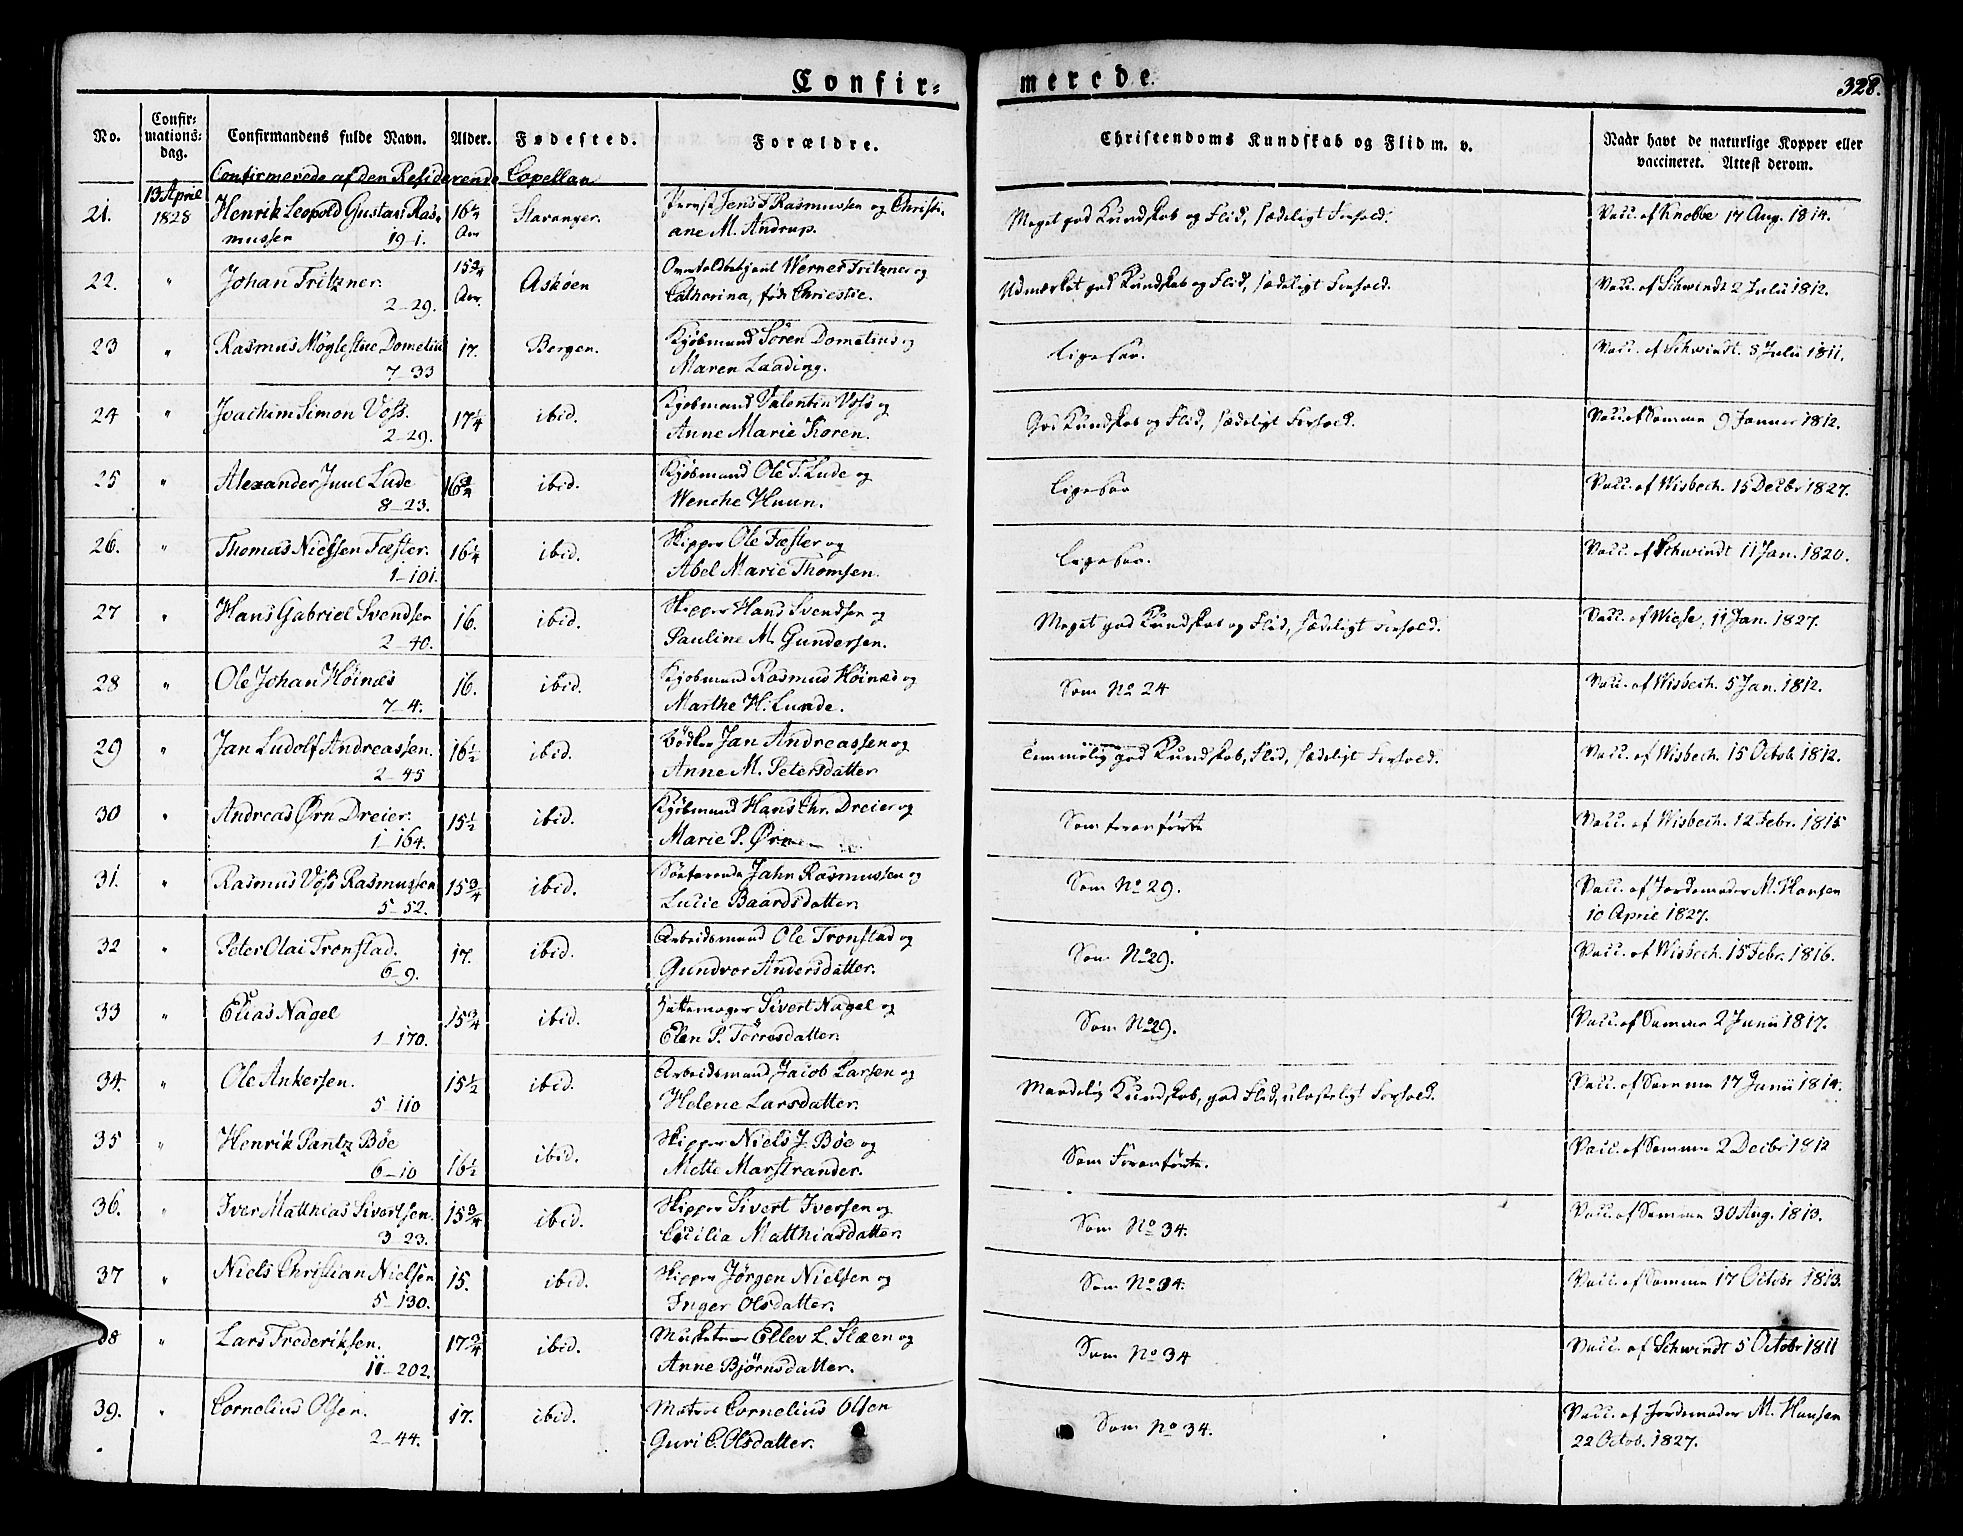 Confir=
merede.
328.
No.
Confir-
mations-
dag.
Confirmandens fulde Navn.
Alder.
Fødested.
Forældre.
Christendoms Kundskab og Flid m. v.
Naar havt de naturlige Kopper eller
vaccineret. Attest derom.
Confirmerede af den Residerende Capellan
21. 13 April 1828 Henrik Leopold Gustav Ras- 16 1/4 Stavanger. Jens Rasmussen og Christi- Meget god Kundskab og Flid, sædeligt Forhold. Vacc. af Knobbe 17 Aug. 1814.
mussen 19-1. Aar ane M. Andrup.
22. " Johan Fritzner. 15 3/4 Askøen Werner Fritzner og Udmærket god Kundskab og Flid, sædeligt Forhold. Vacc. af Schwindt 2 Julii 1812.
2-29. Aar. Catharina, fød Christie.
23 " Rasmus Møglestue Dometius 17. Bergen. Kjøbmand Søren Dometius og Ligesaa. Vacc. af Schwindt. 5 Julii 1811.
7-33 Maren Laading.
24 " Joachim Simon Voss. 17 1/4 ibid. Kjøbmand Valentin Voss og God Kundskab og Flid, sædeligt Forhold. Vacc. af Samme 9 Januar 1812.
2-29. Anne Marie Koren.
25 " Alexander Juul Lude 16 3/4 ibid. Kjøbmand Ole T. Lude og Ligesaa Vacc. af Wisbech. 15 Decbr 1827.
8-23. Wenche Huun.
26. " Thomas Nielsen Fæster. 16 1/4 ibid. Skipper Ole Fæster og Ligesaa. Vacc. af Schwindt 11 Jan. 1820.
1-101. Abel Marie Thomsen.
27 " Hans Gabriel Svendsen 16. ibid. Skipper Hans Svendsen og Meget god Kundskab og Flid, sædeligt Forhold. Vacc. af Wiese, 11 Jan. 1827.
2-40. Pauline M. Gundersen.
28 " Ole Johan Høinæs 16. ibid. Kjøbmand Rasmus Høinæs og Som No 24 Vacc. af Wisbech. 5 Jan. 1812.
7-4. Marthe H. Lunde.
29 " Jan Ludolf Andreassen. 16 1/2 ibid. Bødker Jan Andreassen og Temmelig god Kundskab, Flid, sædeligt Forhold. Vacc. af Wisbech. 15 Octob 1812.
2-45 Anne M. Petersdatter
30 " Andreas Ørn Dreier. 15 1/2 ibid. Kjøbmand Hans Chr. Dreier og Som foranførte Vacc. af Wisbech. 12 Febr. 1815
1-164. Marie P. Ørn
31. " Rasmus Voss Rasmussen 15 3/4 ibid. Søefarende Jahn Rasmussen og Som No 29. Vacc. af Jordemoder M. Hansen
5-52. Lucie Baardsdatter. 10 April 1827.
32 " Peter Olai Tronstad. 17. ibid. Arbeidsmand Ole Tronstad og Som No 29. Vacc. af Wisbech. 15 Febr. 1816.
6-9. Gundvor Andersdatter.
33 " Elias Nagel 15 3/4 ibid. Hattemager Sivert Nagel og Som No 29. Vacc. af Samme 2 Junii 1817.
1-170. Elen P. Torresdatter.
34. " Ole Ankersen. 15 1/2 ibid. Arbeidsmand Jacob Larsen og Maadelig Kundskab, god Flid, ulasteligt Forhold. Vacc. af Samme 17 Junii 1814.
5 110 Helene Larsdatter.
35 " Henrik Pantz Bøe 16 1/2 ibid. Skipper Niels J. Bøe og Som Foranførte. Vacc. af Samme 2 Decbr 1812
6-10 Mette Marstrander.
36. " Iver Matthias Sivertsen. 15 3/4 ibid. Skipper Sivert Iversen og Som No 34. Vacc. af Samme 30 Aug. 1813.
3 23. Cecilia Matthiasdatter.
37 " Niels Christian Nielsen 15. ibid. Skipper Jørgen Nielsen og Som No 34. Vacc. af Samme 17 Octobr 1813.
5-130. Inger Olsdatter.
38 " Lars Frederiksen. 17 3/4 ibid. Ellev L. Slæen og Som No 34 Vacc. af Schwindt 5 Octobr 1811
11-202. Anne Bjørnsdatter.
39. " Cornelius Olsen. 17. ibid. Matros Cornelius Olsen Som No 34. Vacc. af Jordemoder M. Hansen
2-44. Guri C. Olsdatter. 22 Octob. 1827.